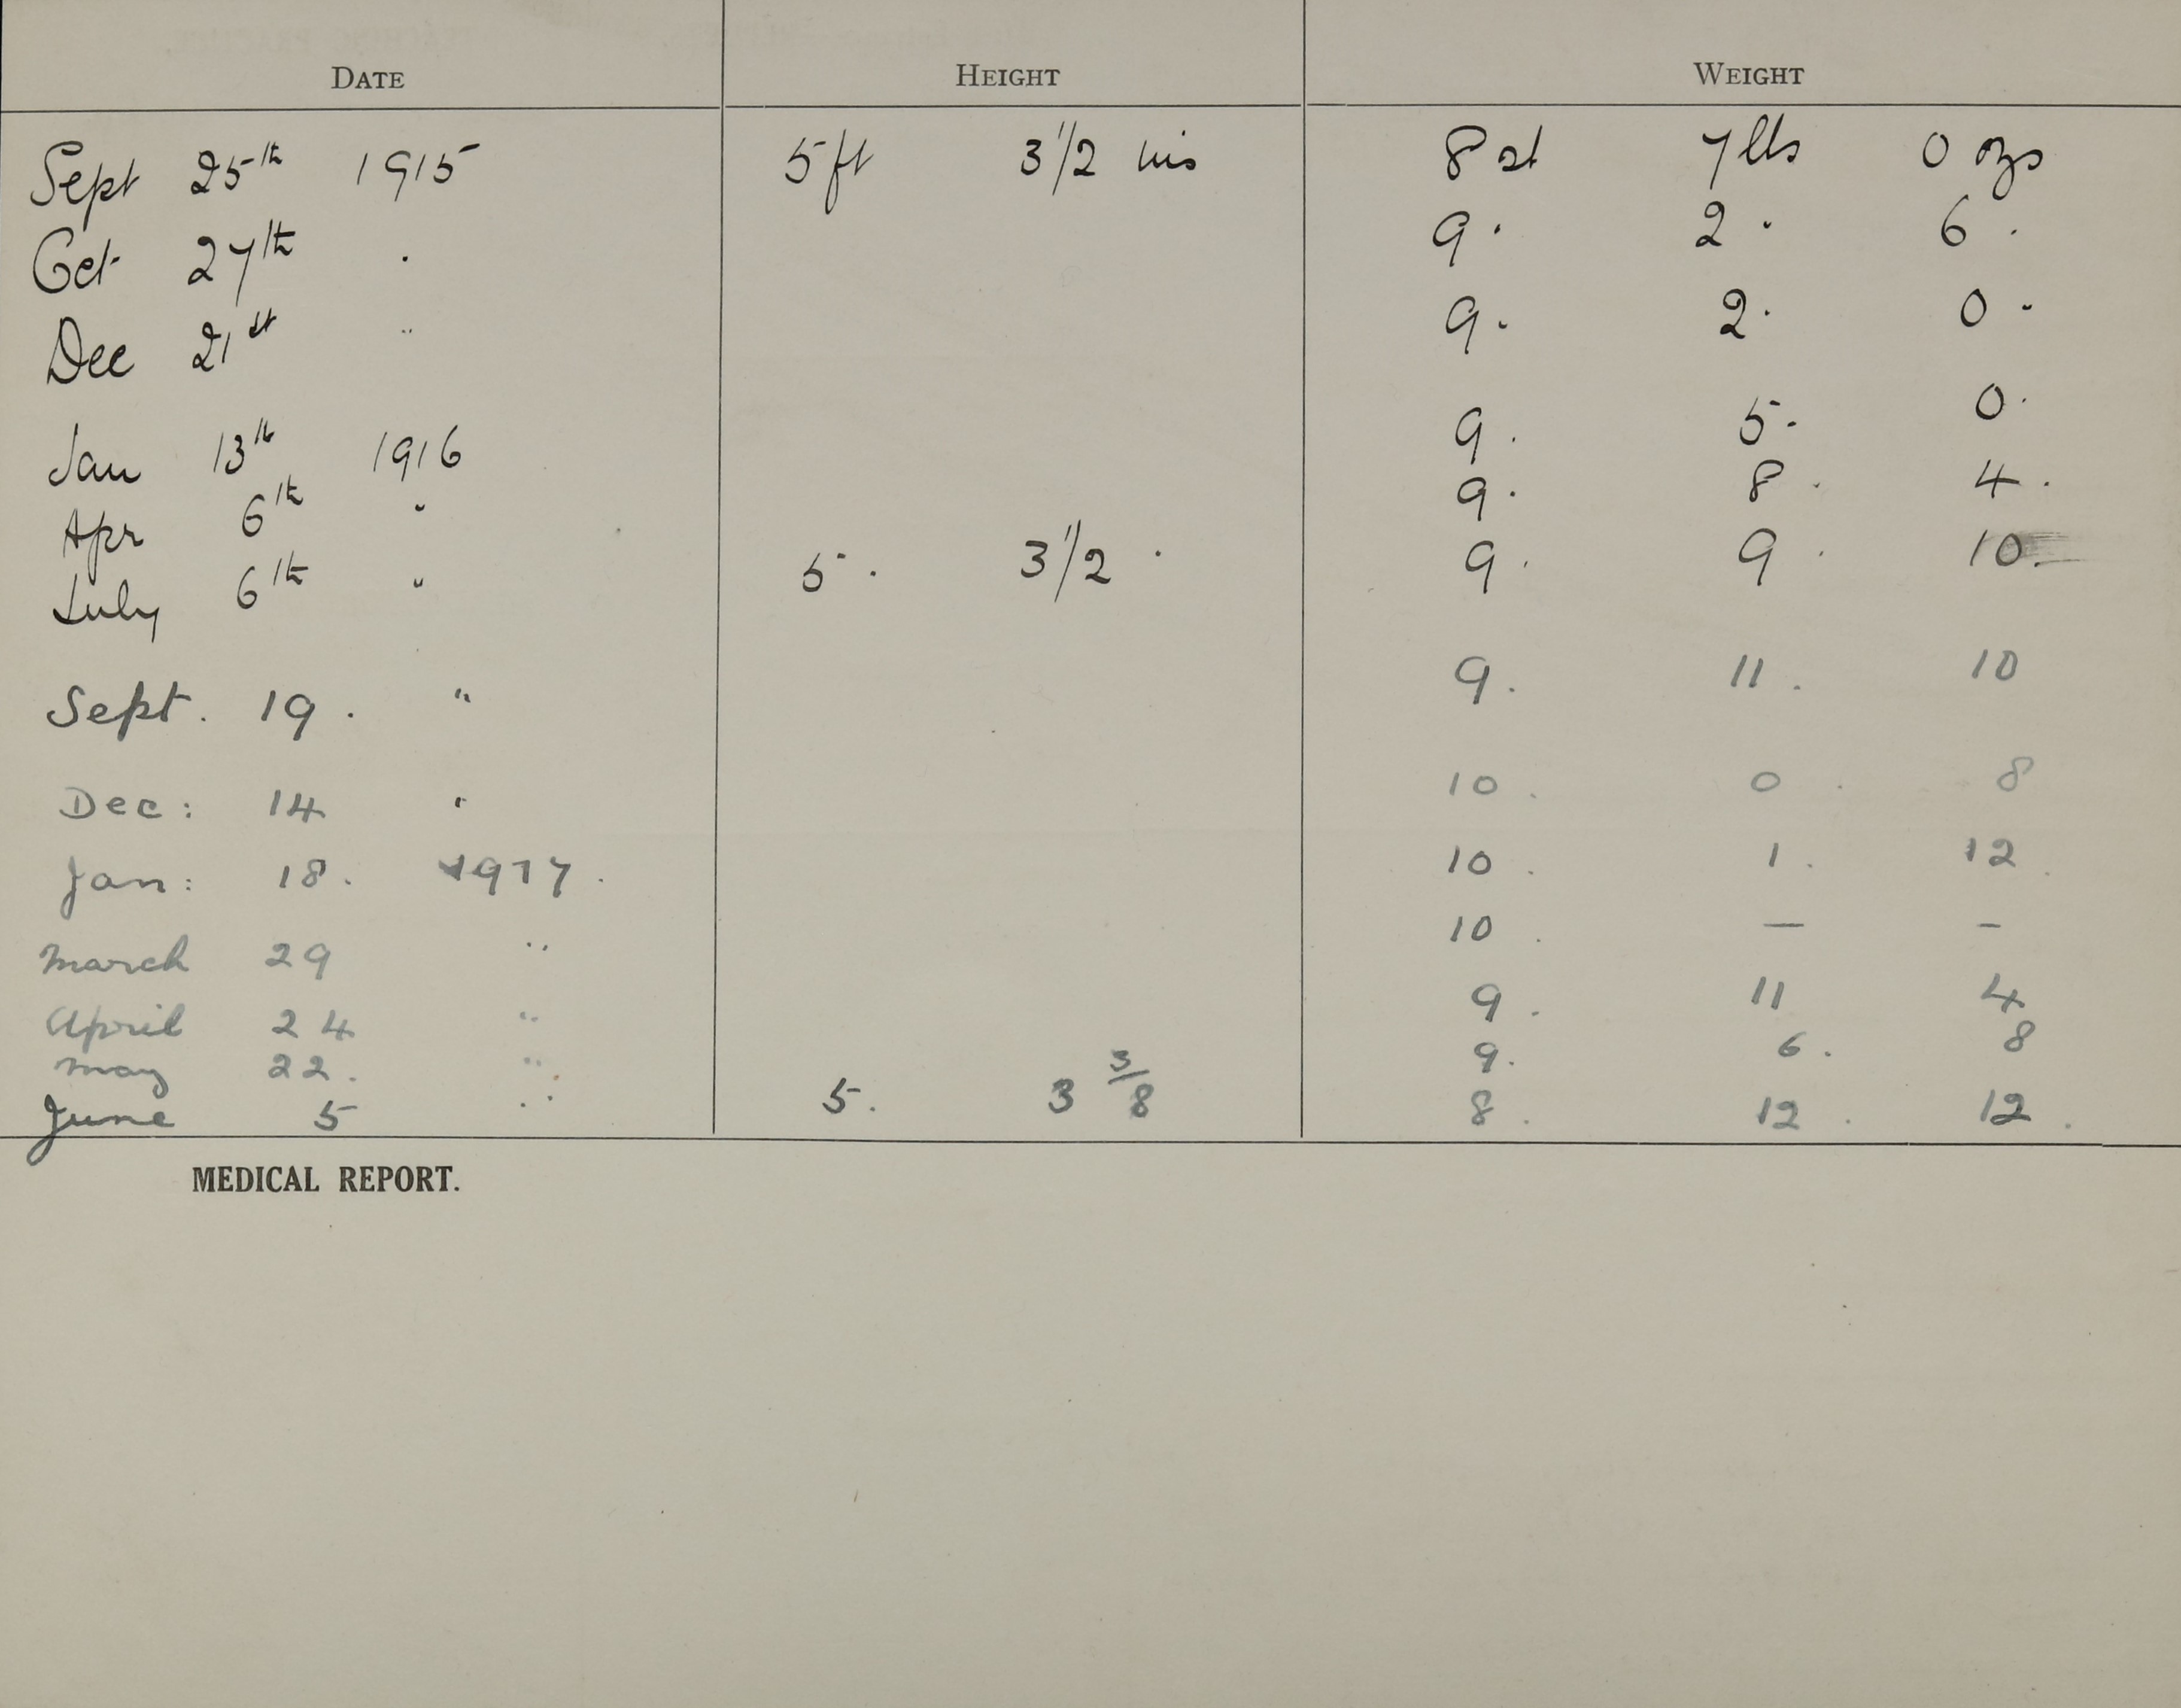 DATE HEIGHT WEIGHT
Sept 25th 1915 5 ft 3 1/2 ins 8 st 7 lbs 0 ozs
Oct 27th " 9 . 2 . 6 .
Dec 21st " 9 . 2 . 0 .
Jan 13th 1916 9 . 5 . 0 .
Apr 6th " 9 . 8 . 4 .
July 6th " 5 . 3 1/2 . 9 . 9 . 10 .
Sept. 19 . " 9 . 11 . 10
Dec : 14 " 10 . 0 . 8
Jan : 18 . 1917 . 10 . 1 . 12 .
March 29 " 10 . — –
April 24 " 9 . 11 4
May 22 . " 9 . 6 . 8
June 5 " 5 . 3 3/8 8 . 12 . 12 .
MEDICAL REPORT.